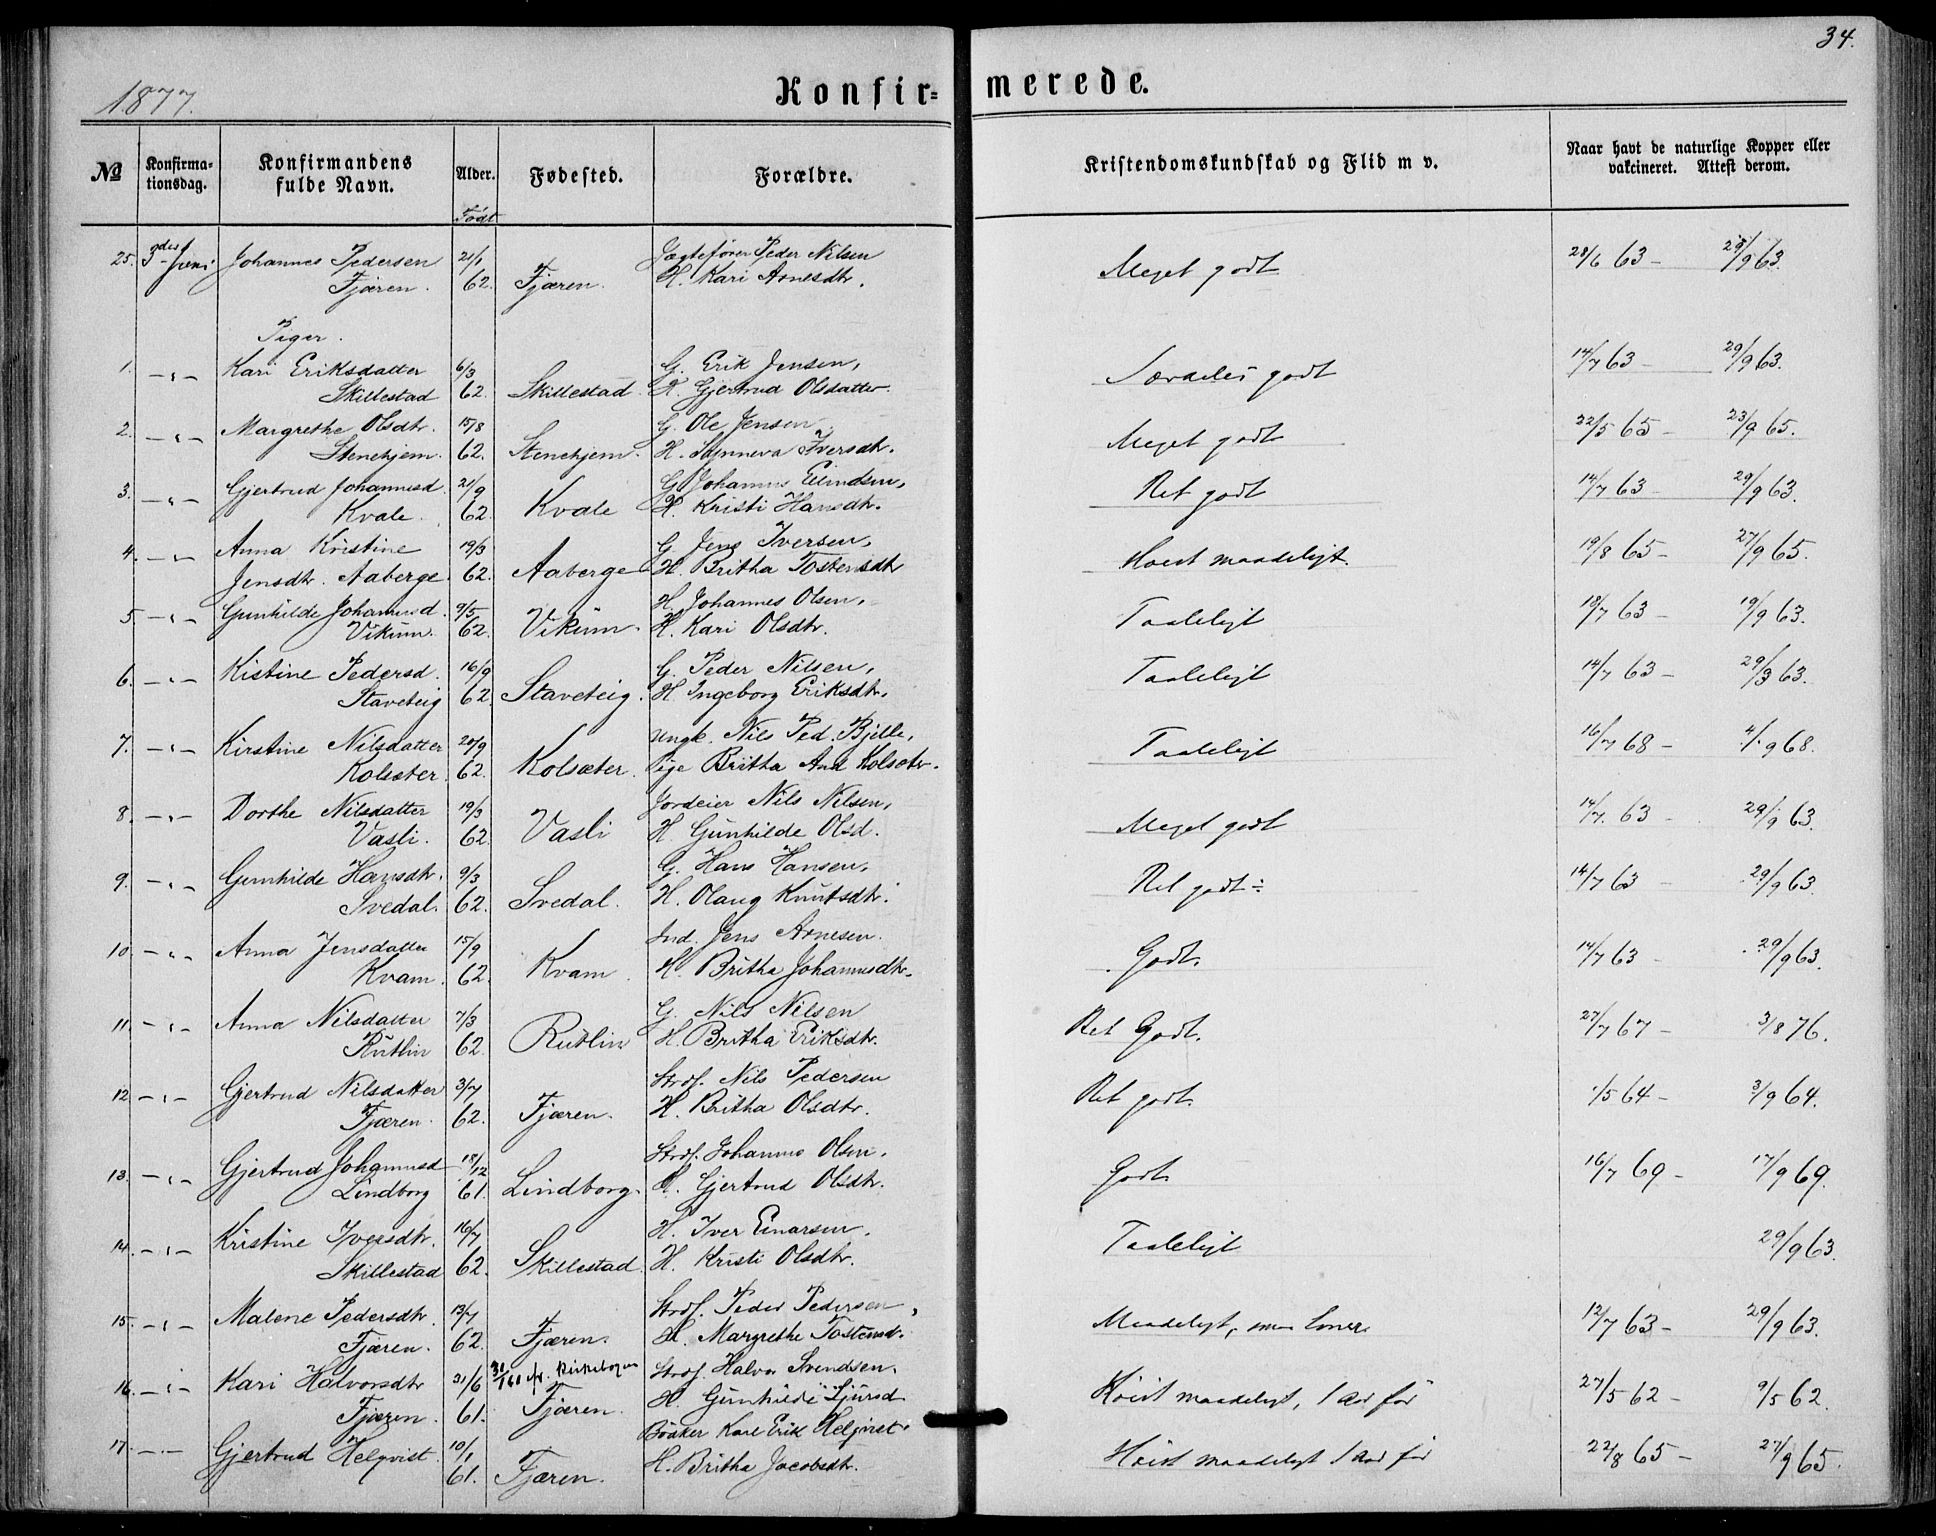 34.
1877.
Konfir= merede.
№ Konfirma-tionsdag. Konfirmandens fulde Navn. Alder. Fødested. Forældre. Kristendomskundskab og Flid m v. Naar havt de naturlige Kopper eller vakcineret. Attest derom.
Født
25. 3die Juni Johannes Pedersen 21/1 Jægtefører Peder Nilsen Meget godt 28/6 63 – 29/9 63.
Fjæren. 62. Fjæren. H. Kari Arnesdtr.
Piger.
1. –„– Kari Eriksdatter 6/3 G. Erik Jensen, Særdeles godt 14/7 63 – 29/9 63.
Skillestad 62. Skillestad. K. Gjertrud Olsdatter.
2. –„– Margrethe Olsdtr. 15/8 G. Ole Jensen Meget godt 22/5 65 – 23/9 65.
Stenehjem. 62. Stenehjem. H. Synneva Iversdtr.
3. –„– Gjertrud Johannesd. 21/9 G. Johannes Ret godt 14/7 63 – 29/9 63.
Kvale. 62. Kvale H. Kristi Hansdtr.
4. –„– Anna Kristine 19/3 G. Jens Iversen, Høist maadeligt. 19/8 65 – 27/9 65.
Jensdtr. Aaberge 62. Aaberge H. Britha Tostensdtr
5. –„– Gunhilde Johannesd. 9/5 H. Johannes Olsen, Taaleligt 18/7 63 – 19/9 63.
Vikum. 62. Vikum. H. Kari Olsdtr.
6. –„– Kistine Pedersd. 16/9 G. Peder Nilsen, Taaleligt 14/7 63 – 29/3 63.
Staveteig 62. Staveteig. H. Ingeborg Eriksdtr.
7. –„– Kirstine Nilsdatter 20/9 ungk. Nils Ped. Bjelle, Taaleligt 16/7 68 – 4/9 68.
Kolsæter. 62. Kolsæter. Pige Britha And Kolsæter.
8. –„– Dorthe Nilsdatter 19/3 Jordeier Nils Nilsen, Meget godt 14/7. 63 – 29/9 63.
Vasli. 62. Vasli H. Gunhilde Olsd.
9. –„– Gunhilde Hansdtr. 9/3 G. Hans Hansen, Ret godt ÷ 14/7 63 – 29/9 63.
Svedal. 62. Svedal. H. Olaug Knutsdtr.
10. –„– Anna Jensdatter 15/9 Ind. Jens Arnesen. Godt. 14/7 63 – 29/9 63.
Kvam. 62. Kvam H. Britha Johannesdtr.
11. –„– Anna Nilsdatter 7/3 G. Nils Nilsen Ret Godt. 27/7 67 – 3/8 76.
Rutlin 62. Rutlin H. Britha Eriksdtr.
12. –„– Gjertrud Nilsdatter 3/7 Strds. Nils Pedersen Ret godt. 1/5 64 – 3/9 64.
Fjæren. 62. Fjæren. H. Britha Olsdtr.
13. –„– Gjertrud Johannesd 18/12 Strds. Johannes Olsen. Godt. 16/7 69 – 17/9 69.
Lindborg 61. Lindborg. H. Gjertrud Olsdtr.
14. –„– Kristine Iversdtr. 16/7 H. Iver Einarsen, Taaleligt 29/9 63.
Skillestad 62. Skillestad. H. Kristi Olsdtr.
15. –„– Malene Pedersdtr. 13/7 Strds. Peder Pedersen, Maadeligt, men 12/7 63 – 29/9 63.
Fjæren. 62. Fjæren. H. Margrethe Tostensd.
16. –„– Kari Halvorsdtr 21/6 Kirkebogen Strds. Halvor Svendsen. Høist maadeligt, 1 Aar før 27/5 62 – 9/5 62.
Fjæren. 61. Fjæren. H. Gunhilde Sjursd
17. –„– Gjertrud Helqvist. 10/1 Bødker Karl Erik Helqvist. Høist maadeligt 1 Aar før 22/8 65 – 27/9 65.
61. Fjæren. H. Britha Jacobsdtr.